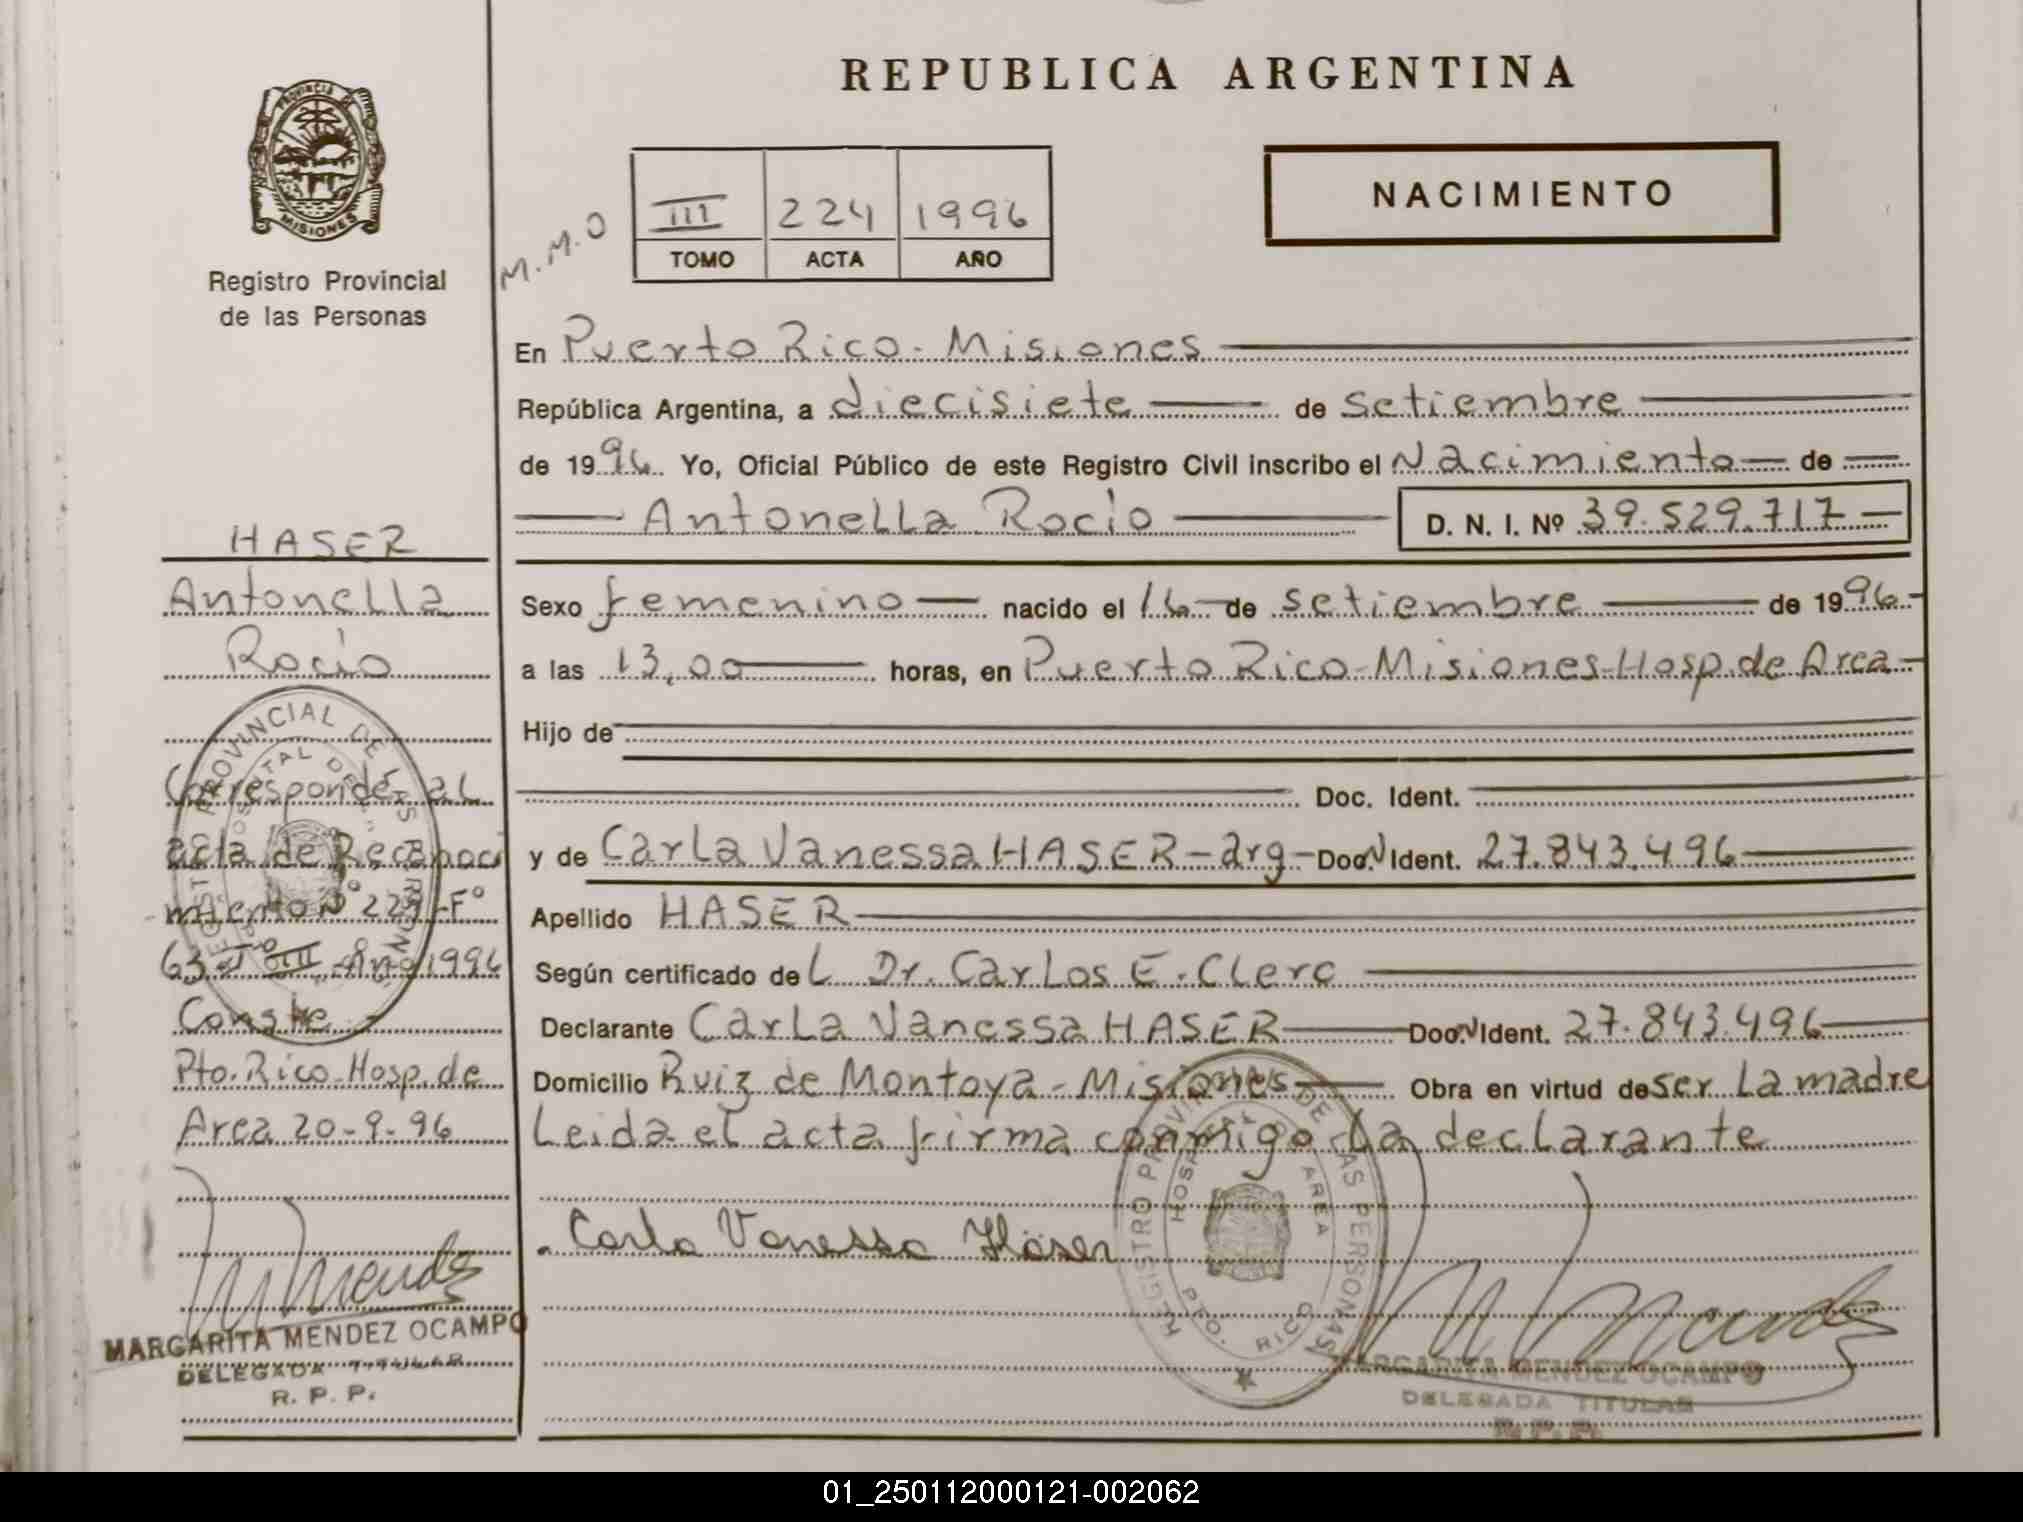 REPUBLICA ARGENTINA
PROVINCIA DE
MISIONES
Registro Provincial
de las Personas
NACIMIENTO
M.M.O
III 224 1996
TOMO ACTA AÑO
En Puerto Rico - Misiones
República Argentina, a diecisiete de setiembre
de 1996 Yo, Oficial Público de este Registro Civil inscribo el Nacimiento de
Antonella Rocío D. N. I. Nº 39.529.717
Sexo femenino nacido el 16 de setiembre de 1996
a las 13,00 horas, en Puerto Rico-Misiones-Hosp. de Area
Hijo de
Doc. Ident.
y de Carla Vanessa HASER - arg - Doc. N Ident. 27.843.496
Apellido HASER
Según certificado del Dr. Carlos E. Clerc
Declarante Carla Vanessa HASER Doc. N Ident. 27.843.496
Domicilio Ruiz de Montoya - Misiones Obra en virtud de ser La madre
Leida el acta firma conmigo La declarante
Carla Vanessa Häser
REGISTRO PROVINCIAL DE LAS PERSONAS
HOSPITAL DE AREA
PTO. RICO
MARGARITA MENDEZ OCAMPO
DELEGADA TITULAR
R. P. P.
HASER
Antonella
Rocío
Corresponde al
acta de Reconoci
miento Nº 229 - Fº
63 - Tº III - Año 1996
Conste -
Pto. Rico - Hosp. de
Area 20-9-96
REGISTRO PROVINCIAL DE LAS PERSONAS
MARGARITA MENDEZ OCAMPO
DELEGADA TITULAR
R. P. P.
01_250112000121-002062